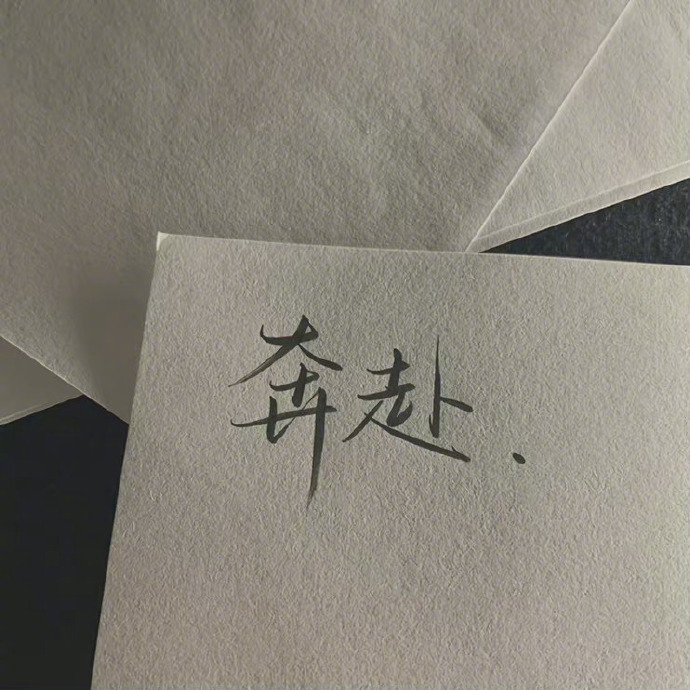 奔赴.